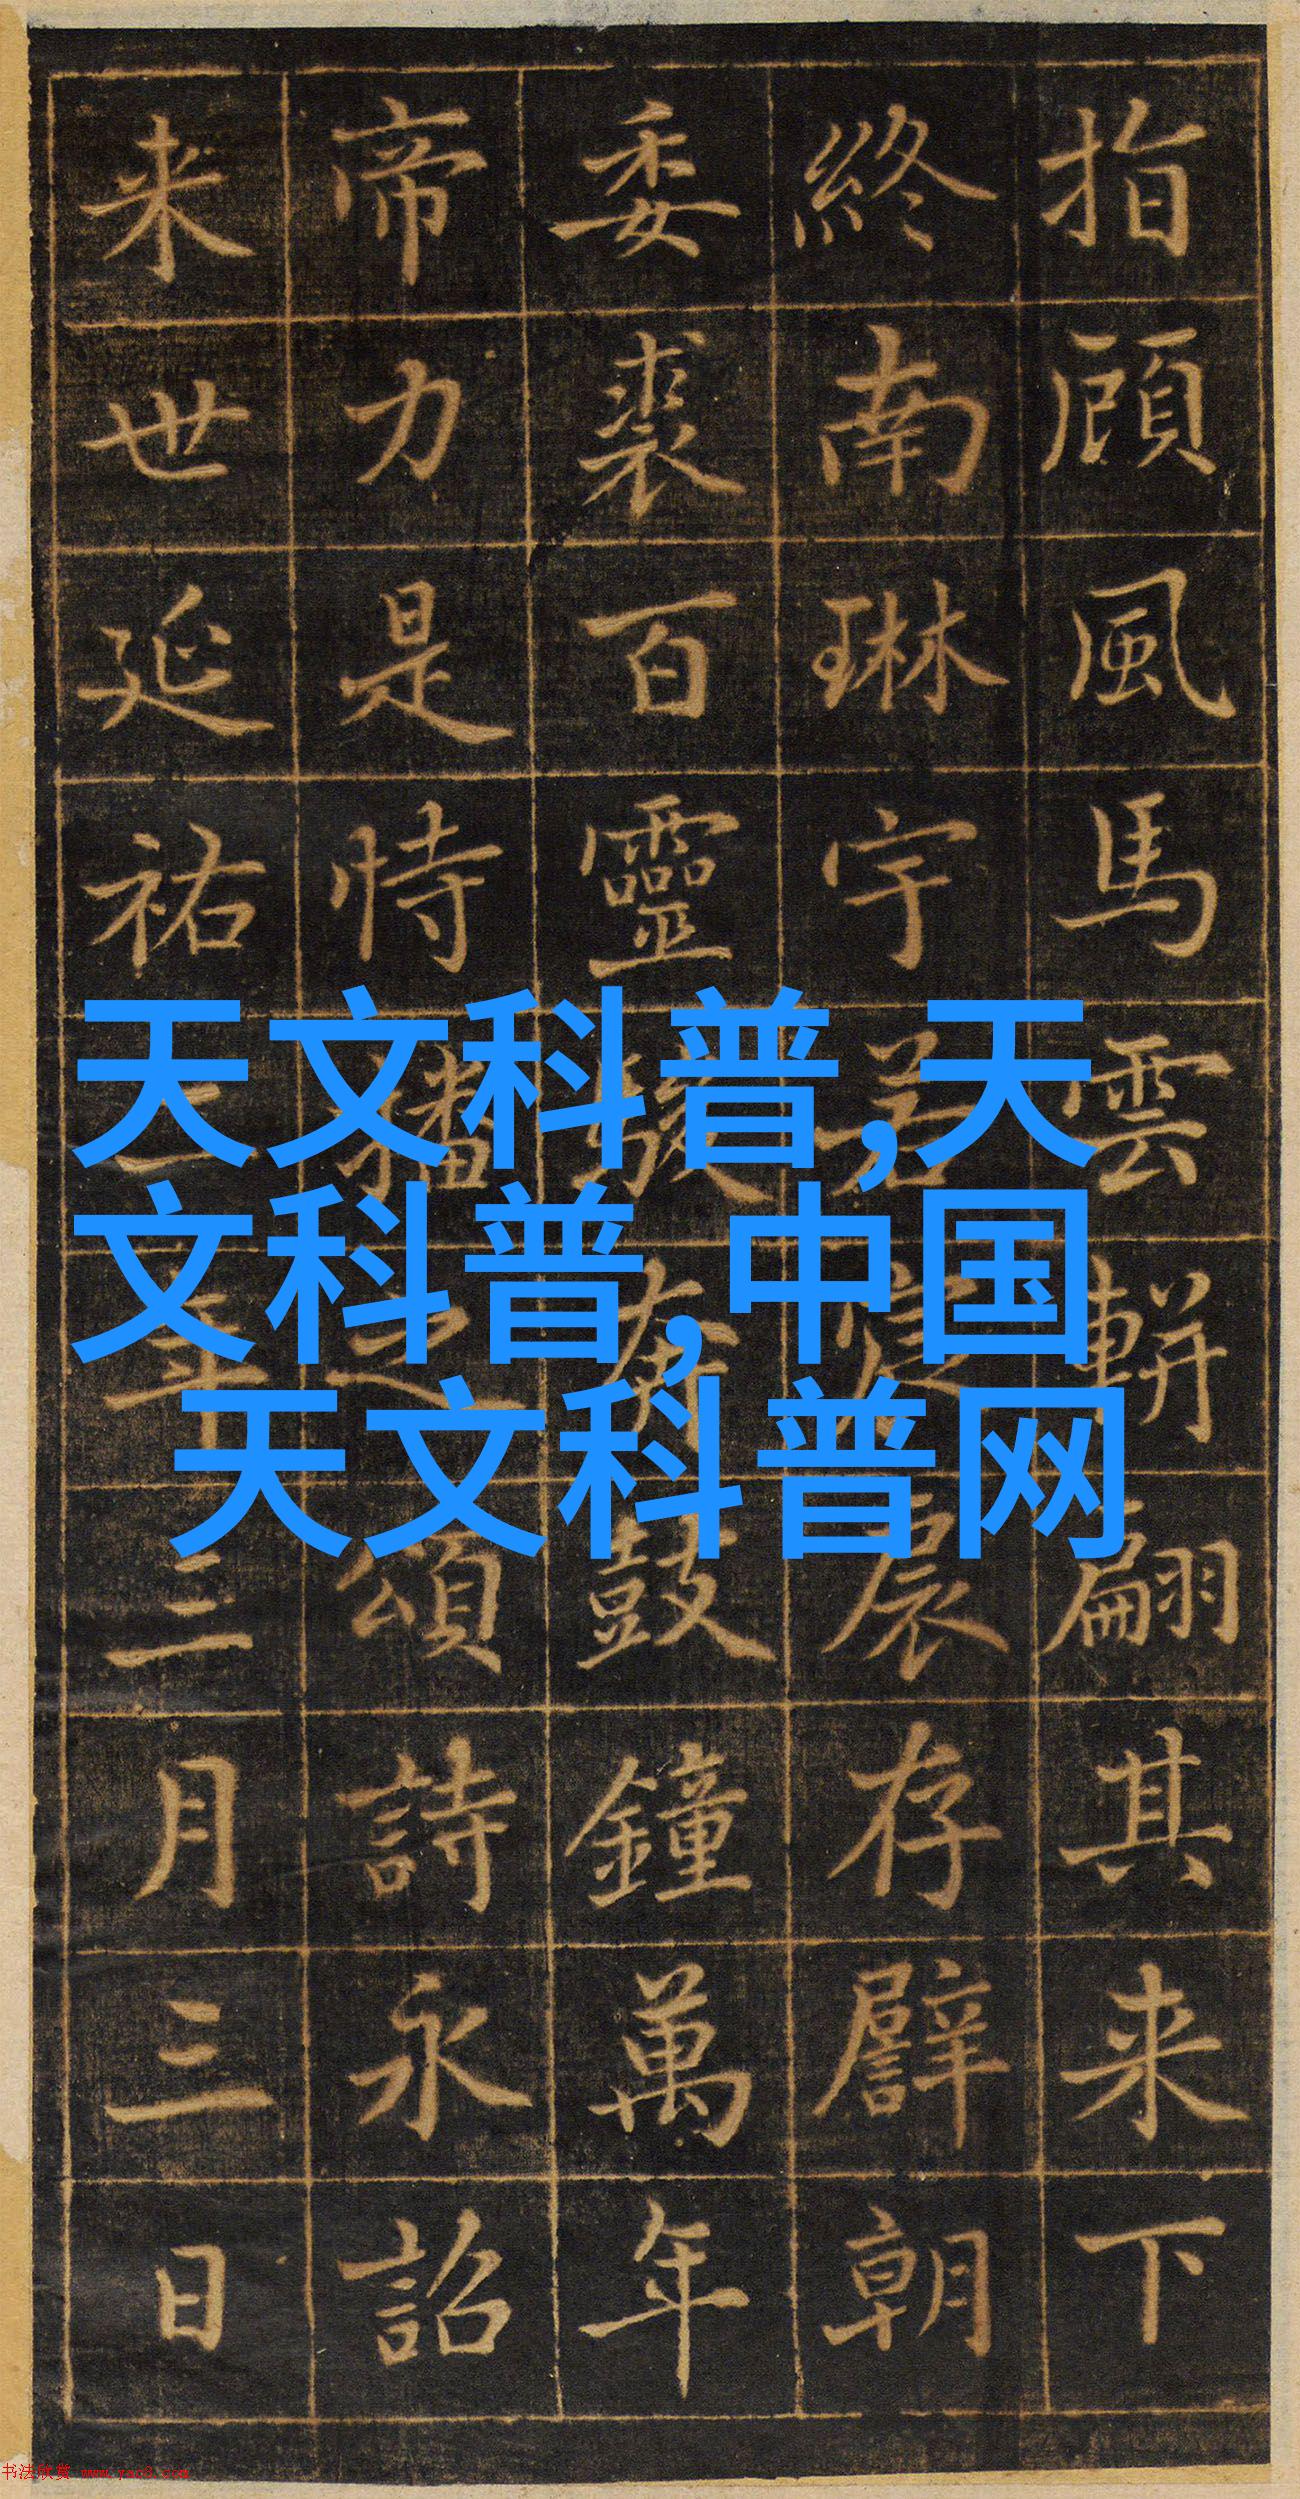 指顧風馬雲輧翩其来下
終南琳宇若存譬朝
委裘百靈駿奔鼓鐘萬年
帝力是恃播之頌詩永詔
来世延祐年三月三日
天文科普,天
文科普,中国
天文科普网
书法欣赏 www.yac8.com